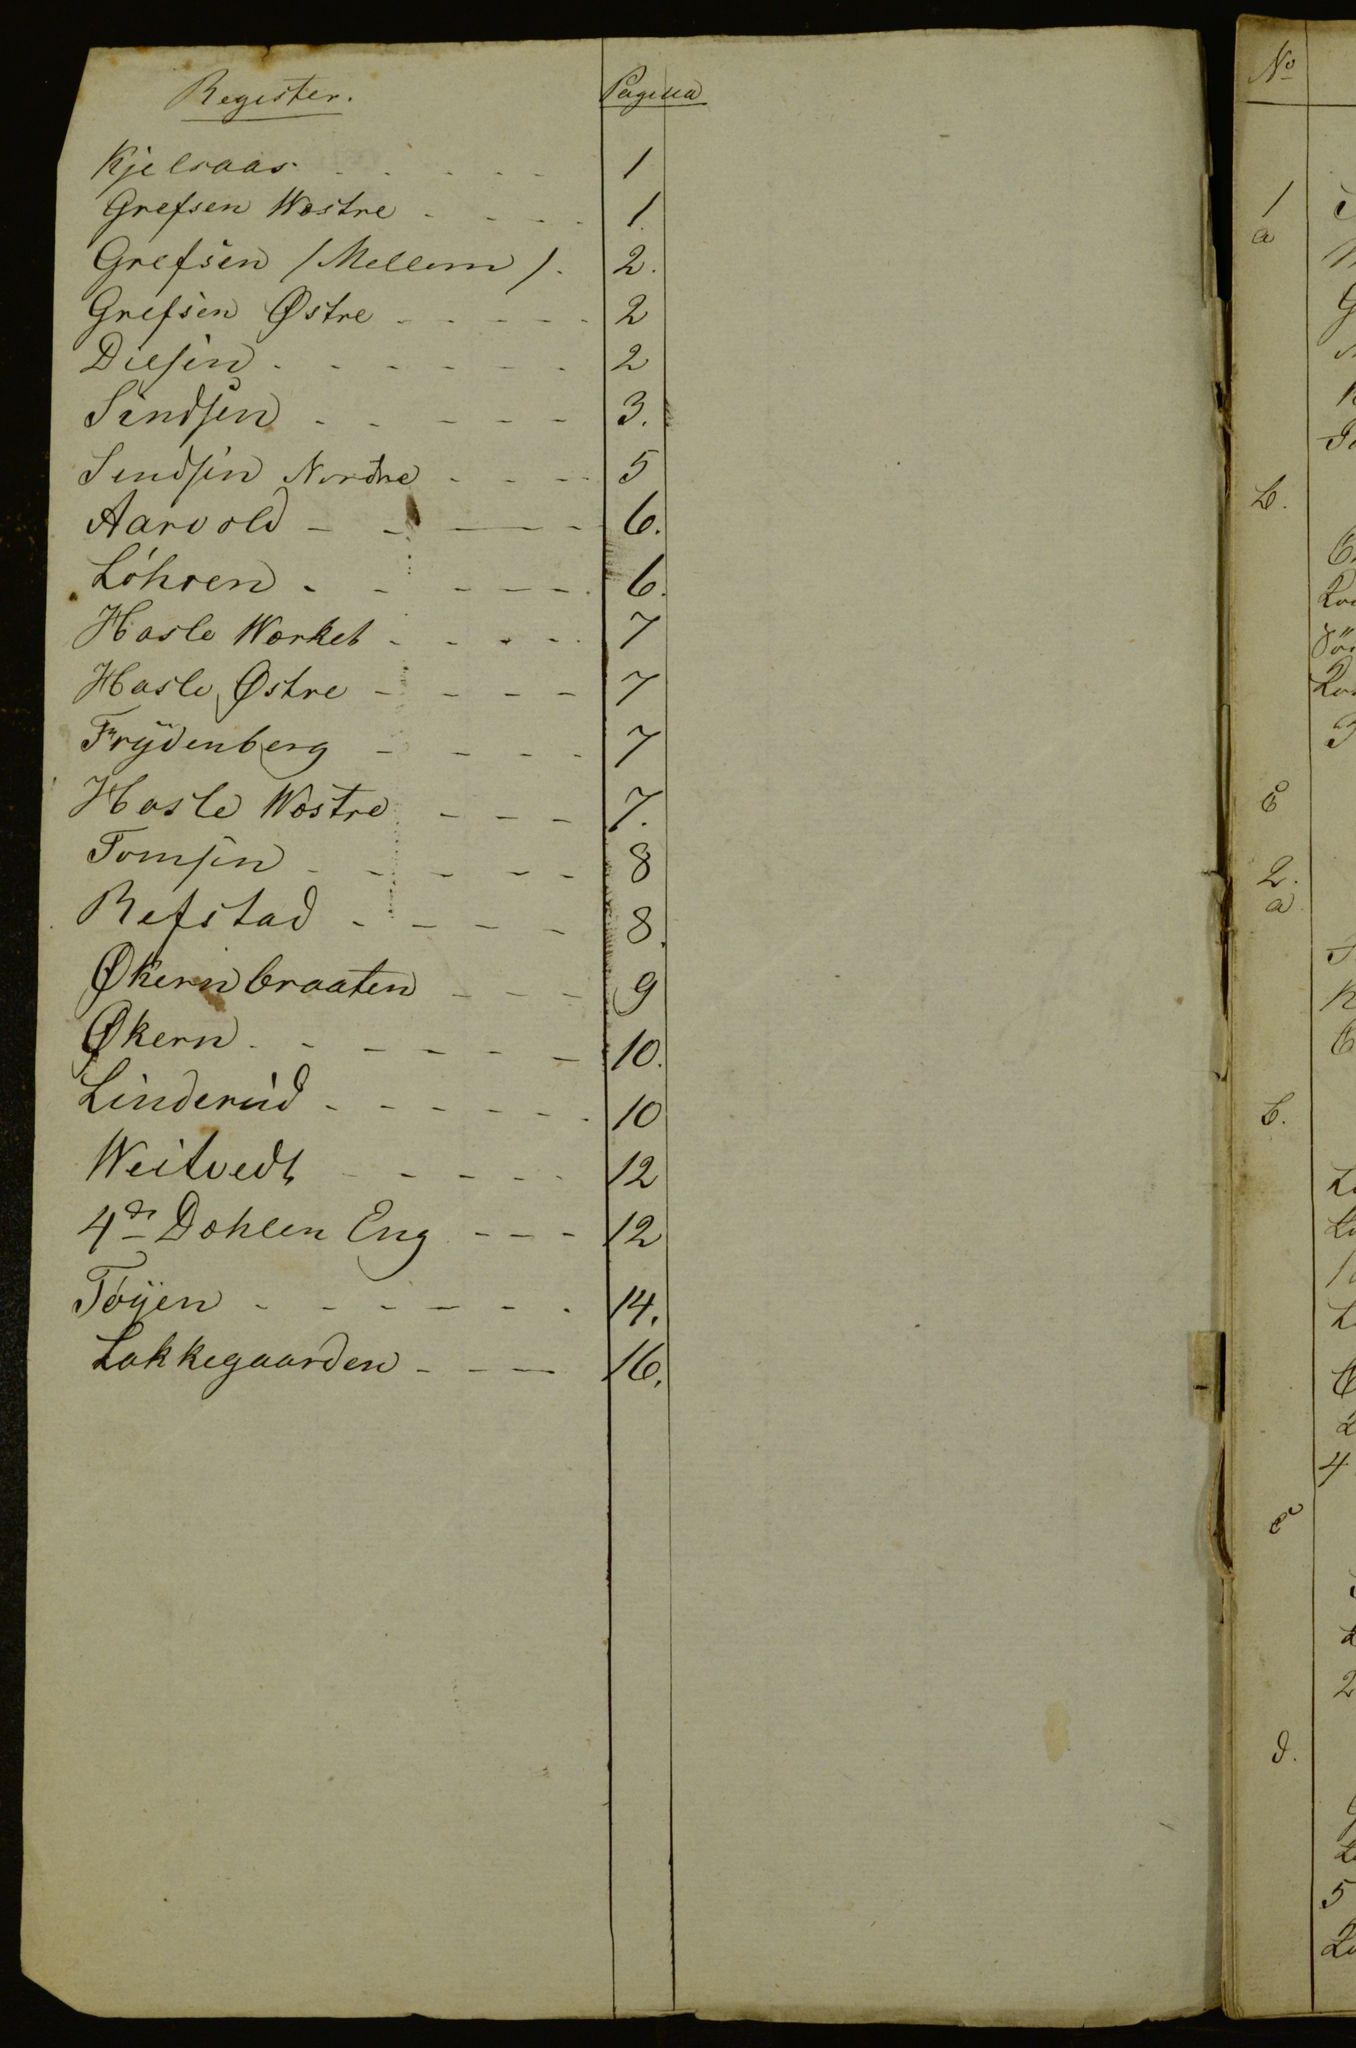 Register. Pagina
Kjelsaas 1
Grefsen Wæstre 1.
Grefsen / Mellem /. 2.
Grefsen Østre 2
Diesen 2
Sindsen 3.
Sindsen Nordre 5
Aarvold 6.
Löhren 6.
Hasle Wærket 7
Hasle Østre 7
Frÿdenberg 7
Hasle Wæstre 7.
Tomsen 8
Refstad 8.
Økernbraaten 9
Økern 10.
Linderud 10
Weitvedt 12
4de Dæhlen Eng 12
Töÿen 14.
Lakkegaarden 16.
No
1
a
b.
c
2.
a
b.
4
c
2
d.
5